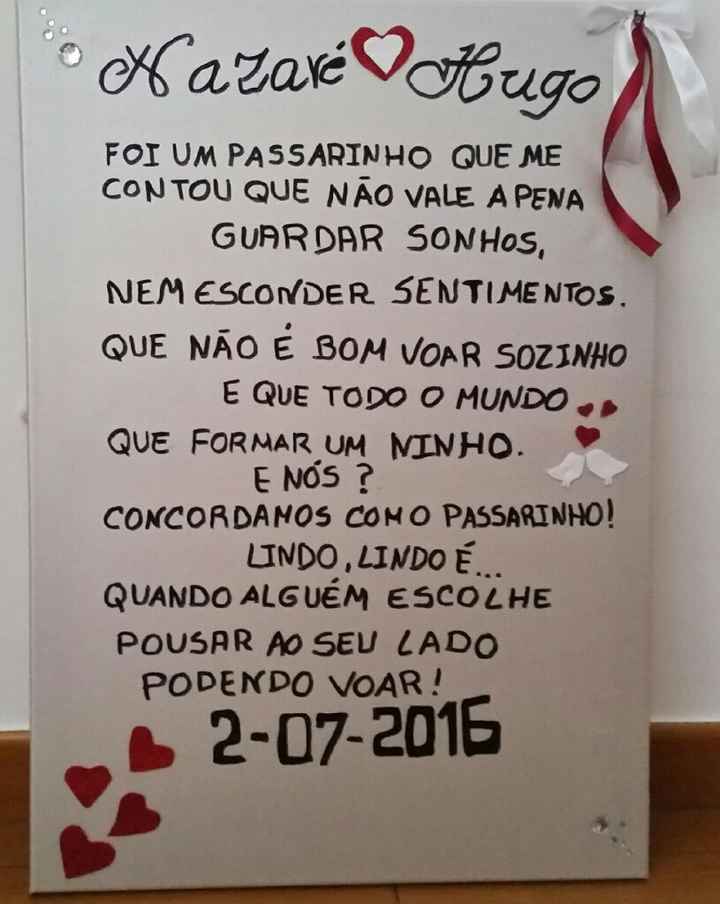 Nazaré Hugo
FOI UM PASSARINHO QUE ME
CONTOU QUE NÃO VALE A PENA
GUARDAR SONHOS,
NEM ESCONDER SENTIMENTOS.
QUE NÃO É BOM VOAR SOZINHO
E QUE TODO O MUNDO
QUE FORMAR UM NINHO.
E NÓS ?
CONCORDAMOS COM O PASSARINHO!
LINDO, LINDO É...
QUANDO ALGUÉM ESCOLHE
POUSAR AO SEU LADO
PODENDO VOAR!
2-07-2016